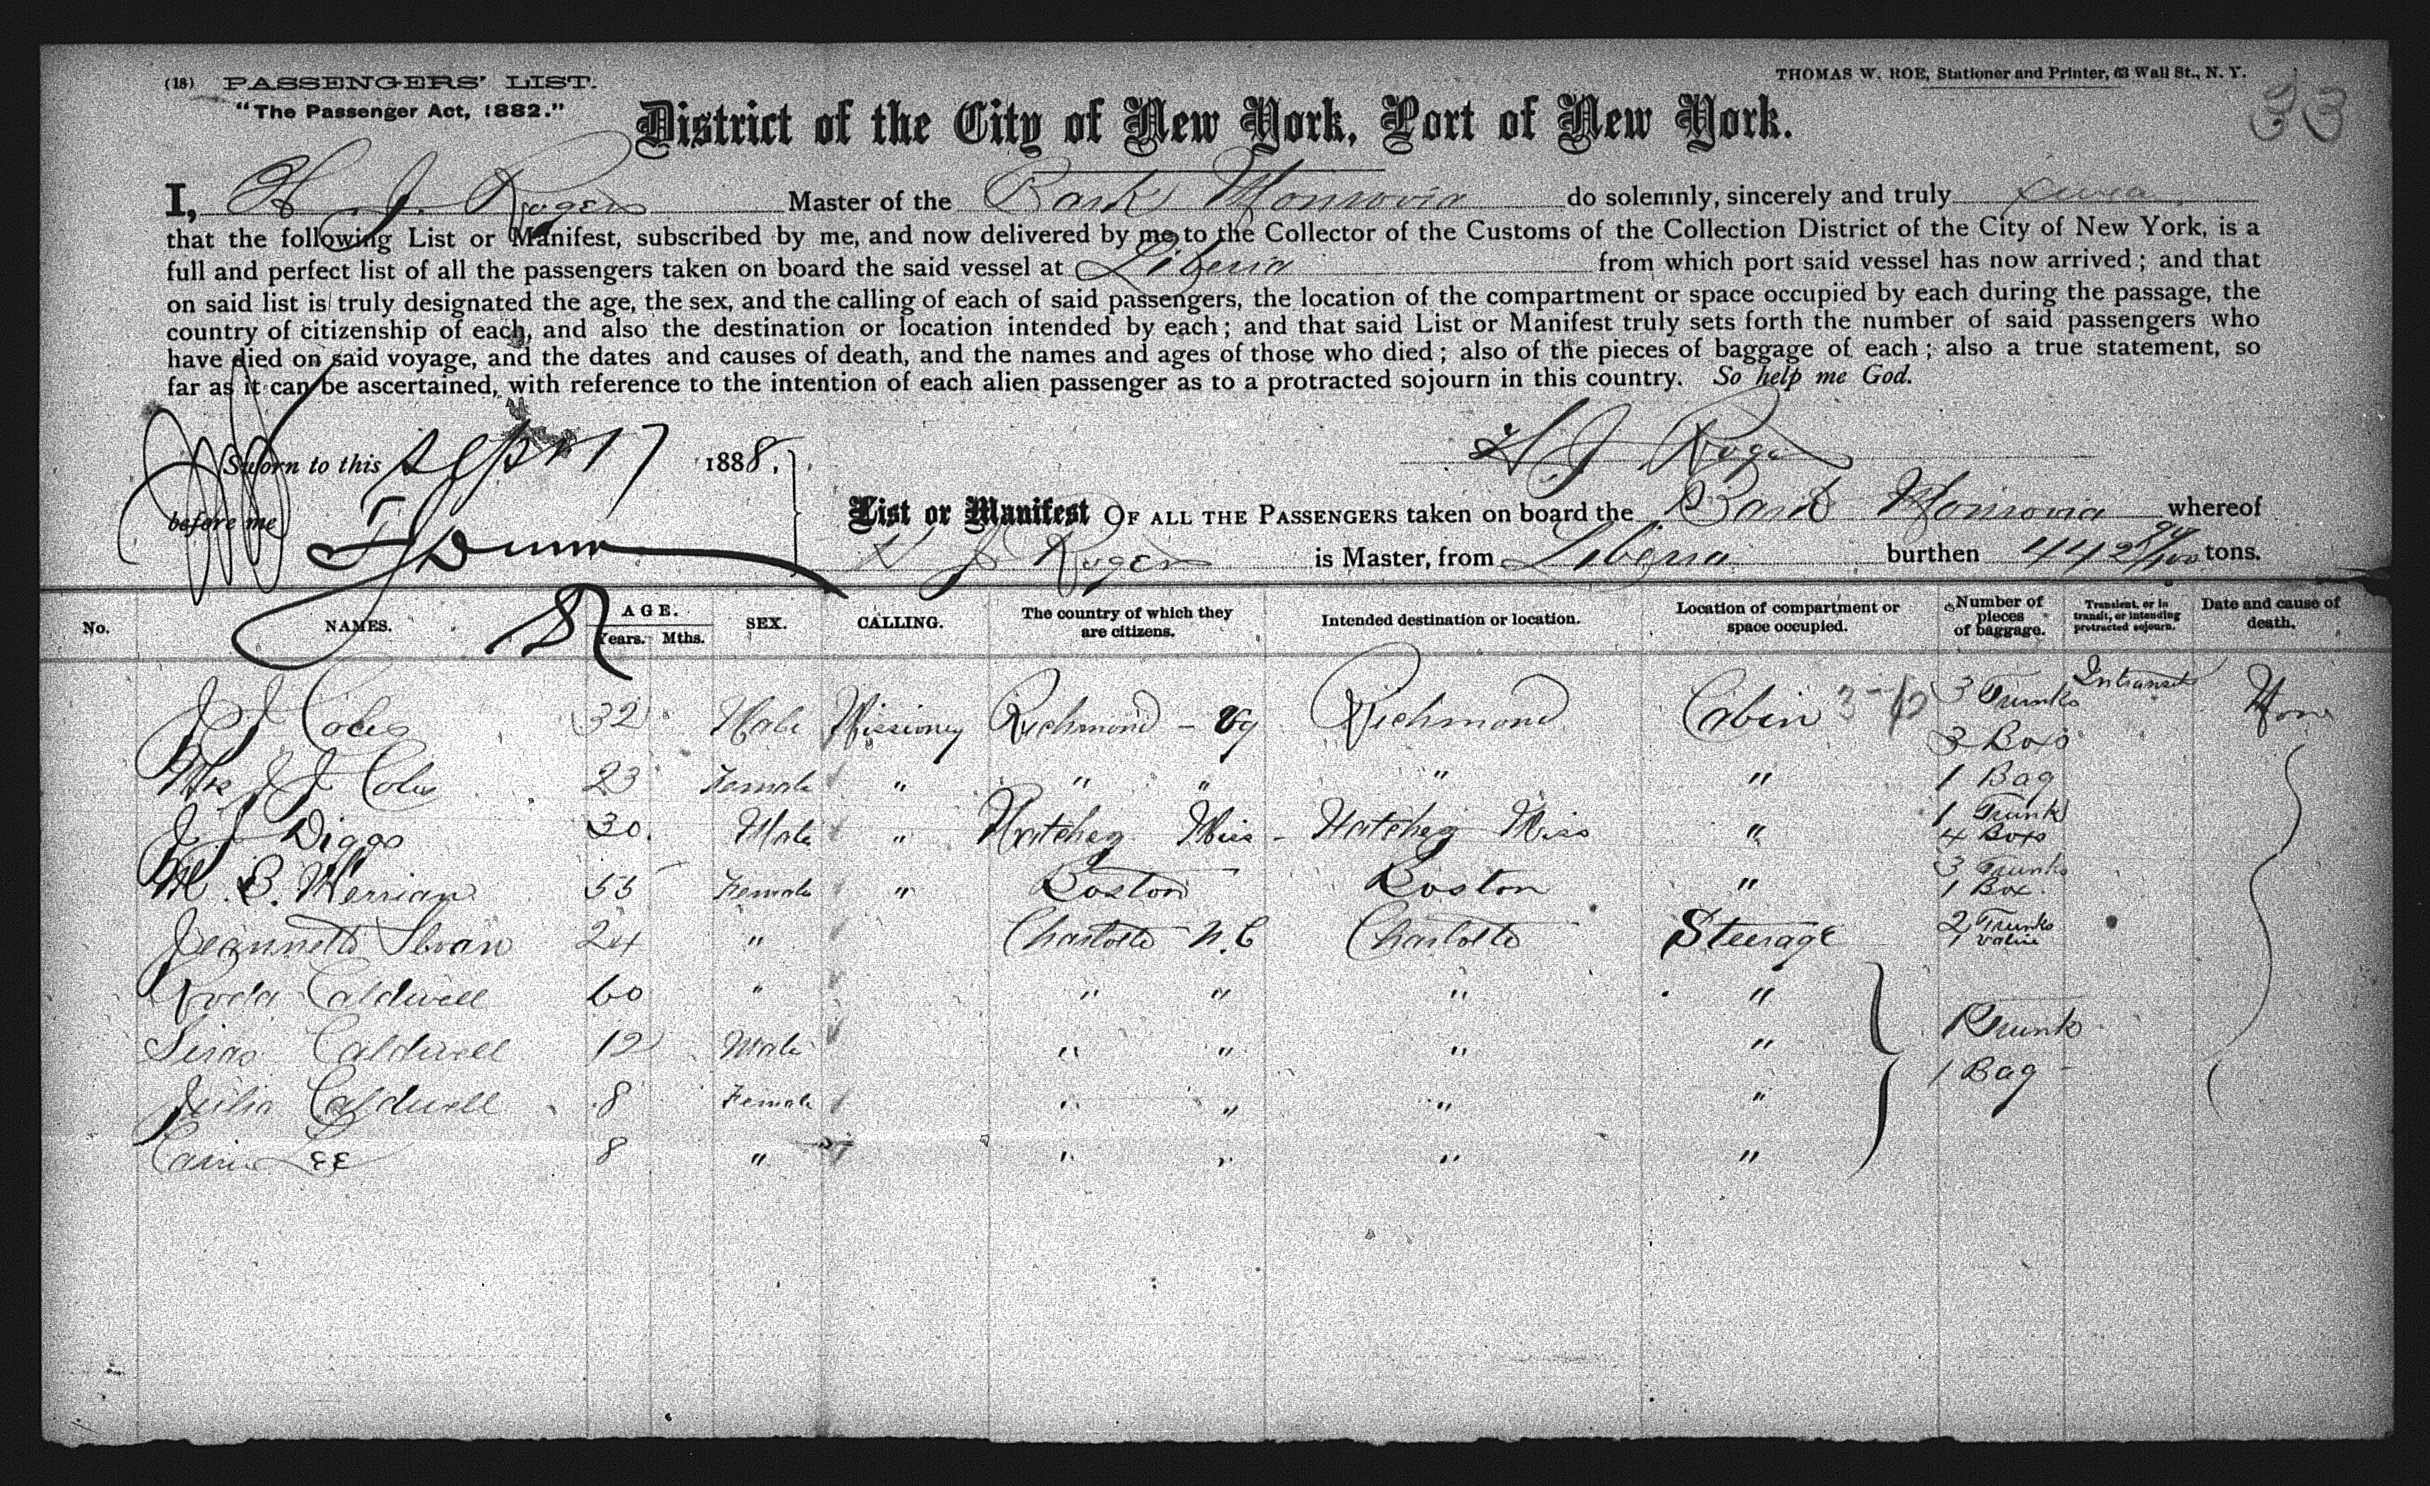 (18) PASSENGERS' LIST.
THOMAS W. ROE, Stationer and Printer, 63 Wall St., N. Y.
"The Passenger Act, 1882."
33
District of the City of New York, Port of New York.
I, H. J. Rogers Master of the Bark Monrovia do solemnly, sincerely and truly swear
that the following List or Manifest, subscribed by me, and now delivered by me to the Collector of the Customs of the Collection District of the City of New York, is a
full and perfect list of all the passengers taken on board the said vessel at Liberia from which port said vessel has now arrived; and that
on said list is truly designated the age, the sex, and the calling of each of said passengers, the location of the compartment or space occupied by each during the passage, the
country of citizenship of each, and also the destination or location intended by each; and that said List or Manifest truly sets forth the number of said passengers who
have died on said voyage, and the dates and causes of death, and the names and ages of those who died; also of the pieces of baggage of each; also a true statement, so
far as it can be ascertained, with reference to the intention of each alien passenger as to a protracted sojourn in this country. So help me God.
Sworn to this Sept 17 1888.
H J Rogers
before me
List or Manifest OF ALL THE PASSENGERS taken on board the Bark Monrovia whereof
H J Rogers is Master, from Liberia burthen 442 /100 tons.
No. NAMES. AGE. Years. Mths. SEX. CALLING. The country of which they are citizens. Intended destination or location. Location of compartment or space occupied. Number of pieces of baggage. Transient, or in transit, or intending protracted sojourn. Date and cause of death.
J J Coles 32 Male Missionry Richmond - Va Richmond Cabin 3 Trunks Intransit Non
3 Boxs
Mrs J J Coles 23 Female " " " " " 1 Bag
J J Diggs 30. Male " Natchez Miss - Natchez Miss " 1 Trunk
4 Boxs
M. B. Merriam 55 Female " Boston Boston " 3 Trunks
1 Box.
Jeannette 24 " Charlotte N.C Charlotte Steerage 2 Trunks
1 Valise
Caldwell 60 " " " " "
Caldwell 12 Male " " " " 1 Trunk
Julia Caldwell 8 Female " " " " 1 Bag -
Carrie Lee 8 " " " " "